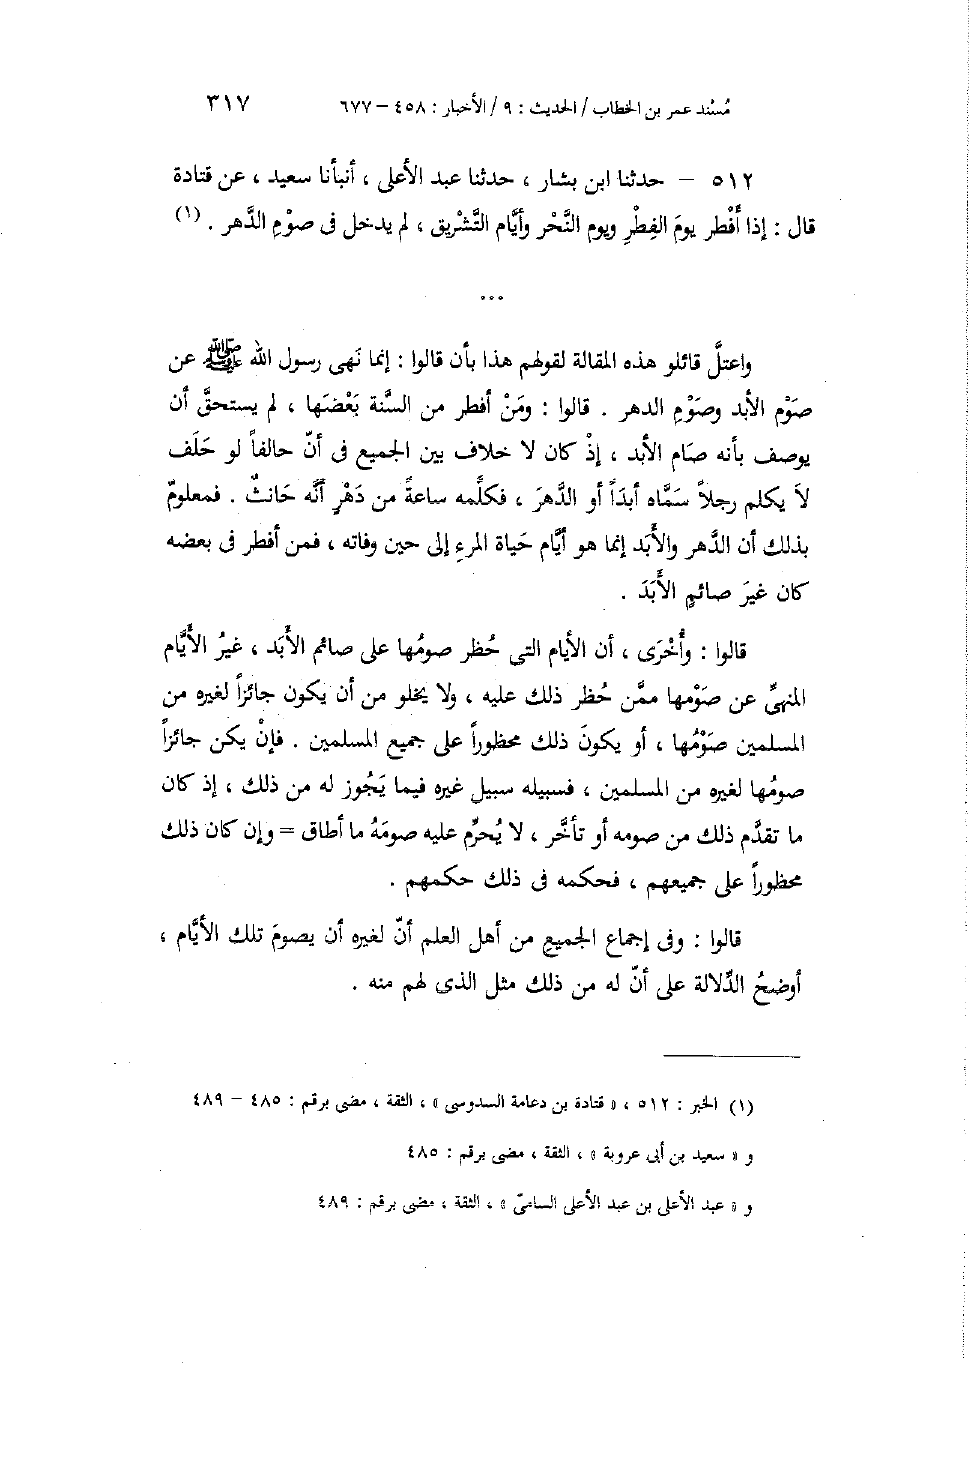 مُسْند عمر بن الخطاب / الحديث : ٩ / الأخبار : ٤٥٨ – ٦٧٧ ٣١٧
٥١٢ – حدثنا ابن بشار ، حدثنا عبد الأعلى ، أنبأنا سعيد ، عن قتادة
قال : إذا أَفْطر يومَ الفِطْرِ ويوم النَّحْر وأيَّام التَّشْريق ، لم يدخل فى صوْمِ الدَّهر . (١)
...
واعتلَّ قائلو هذه المقالة لقولهم هذا بأن قالوا : إنما نَهى رسول الله ﷺ عن
صَوْم الأبد وصَوْمِ الدهر . قالوا : ومَنْ أفطر من السَّنة بَعْضَها ، لم يستحقَّ أن
يوصف بأنه صَام الأبد ، إذْ كان لا خلاف بين الجميع فى أنّ حالفاً لو حَلَف
لاَ يكلم رجلاً سَمَّاه أبَداً أو الدَّهرَ ، فكلَّمه ساعةً من دَهْرٍ أنَّه حَانثٌ . فمعلومٌ
بذلك أن الدَّهر والأَبَد إنما هو أيَّام حَياة المرءِ إلى حين وفاته ، فمن أفطر فى بعضه
كان غيرَ صائمٍ الأَبَدَ .
قالوا : وأُخْرَى ، أن الأيام التى حُظر صومُها على صائم الأبَد ، غيرُ الأَيَّام
المنهىِّ عن صَوْمها ممَّن حُظر ذلك عليه ، ولا يخلو من أن يكون جائزاً لغيره من
المسلمين صَوْمُها ، أو يكونَ ذلك محظوراً على جميع المسلمين . فإنْ يكن جائزاً
صومُها لغيره من المسلمين ، فسبيله سبيل غيره فيما يَجُوز له من ذلك ، إذ كان
ما تقدَّم ذلك من صومه أو تأخَّر ، لا يُحرِّم عليه صومَهُ ما أطاق = وإن كان ذلك
محظوراً على جميعهم ، فحكمه فى ذلك حكمهم .
قالوا : وفى إجماع الجميع من أهل العلم أنّ لغيره أن يصومَ تلك الأيَّام ،
أوضحُ الدِّلالة على أنّ له من ذلك مثل الذى لهم منه .
(١) الخبر : ٥١٢ ، « قتادة بن دعامة السدوسى » ، الثقة ، مضى برقم : ٤٨٥ – ٤٨٩
و « سعيد بن أبى عروبة » ، الثقة ، مضى برقم : ٤٨٥
و « عبد الأعلى بن عبد الأعلى السامىّ » ، الثقة ، مضى برقم : ٤٨٩